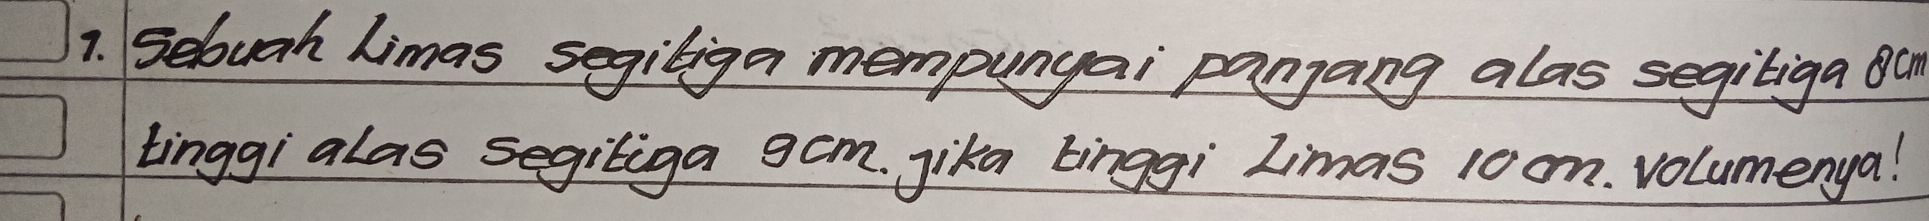 1. Sebuah Limas segitiga mempunyai panjang alas segitiga 8cm
tinggi alas segitiga 9cm. jika tinggi Limas 10 cm. volumenya!